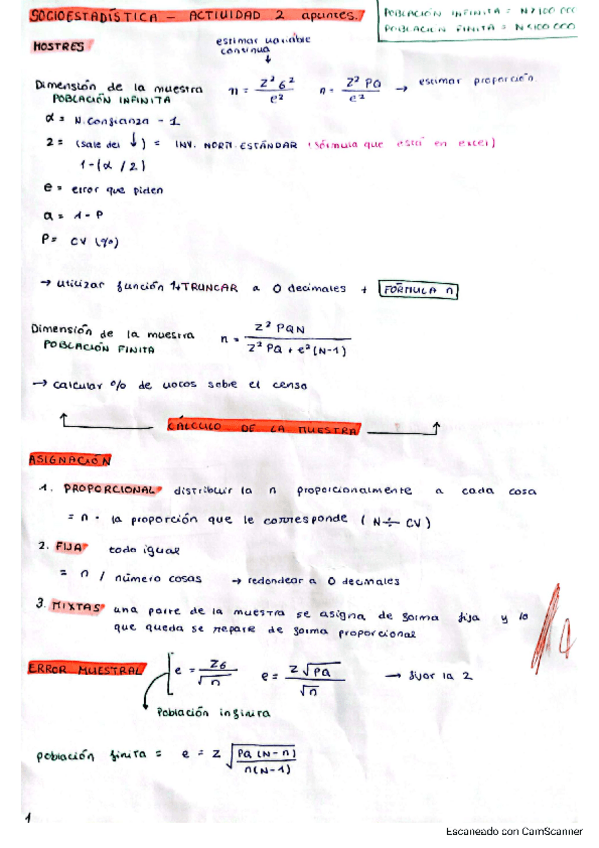 SOCIOESTADÍSTICA - ACTIVIDAD 2 apuntes.
POBLACIÓN INFINITA = N>100.000
POBLACIÓN FINITA = N<100.000
MOSTRES
estimar variable
continua
Dimensión de la muestra
POBLACIÓN INFINITA
n = Z² σ² / e²
n = Z² PQ / e² → estimar proporción.
α = N. Confianza - 1
Z = (sale del ↓) = INV. NORM. ESTÁNDAR (fórmula que está en excel)
1-(α / 2)
e = error que piden
Q = 1 - P
P = CV (%)
→ utilizar función 1+TRUNCAR a 0 decimales + FÓRMULA n
Dimensión de la muestra
POBLACIÓN FINITA
n = Z² PQN / Z² PQ + e² (N-1)
→ calcular % de votos sobre el censo
CÁLCULO DE LA MUESTRA
ASIGNACIÓN
1. PROPORCIONAL distribuir la n proporcionalmente a cada cosa
= n · la proporción que le corresponde (N÷ CV)
2. FIJA todo igual
= n / número cosas → redondear a 0 decimales
3. MIXTAS una parte de la muestra se asigna de forma fija y lo
que queda se reparte de forma proporcional
ERROR MUESTRAL
e = Zσ / √n
e = Z √PQ / √n → fijar la Z
Población infinita
población finita = e = Z √ PQ (N-n) / n(N-1)
1
Escaneado con CamScanner